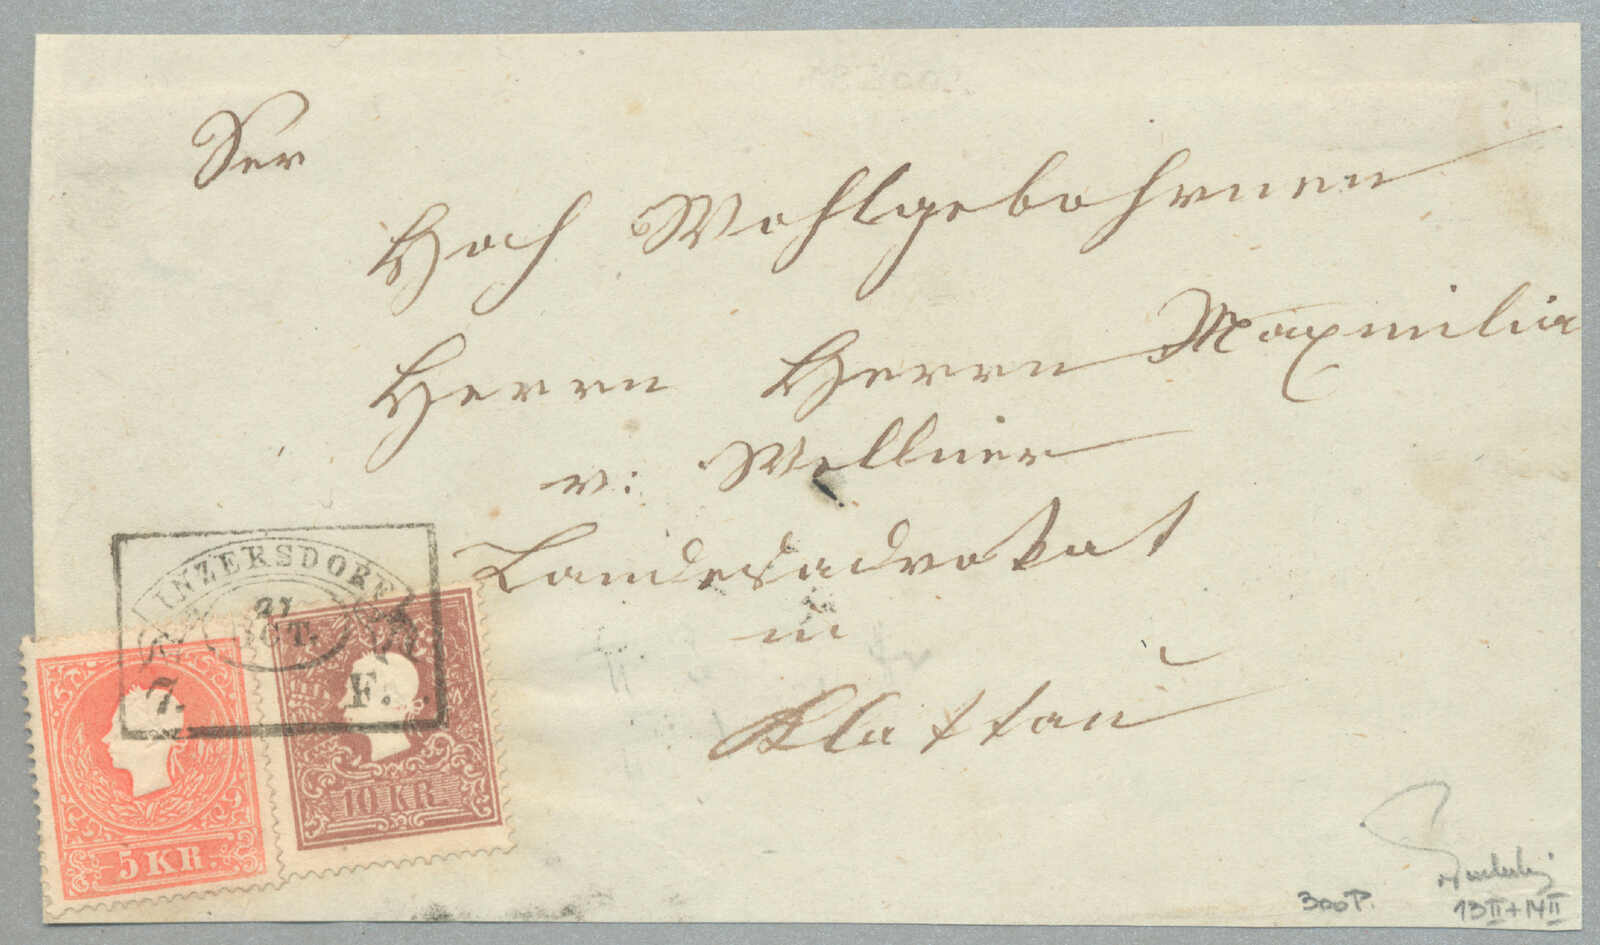 Ser
Hoch Wohlgebohrnen
Herrn Herrn Maximilia
v: Wellner
Landesadvokat
in
Klattau
INZERSDORF
21
OCT.
7. F.
5 KR.
10 KR
300 P.
13 II + 14 II